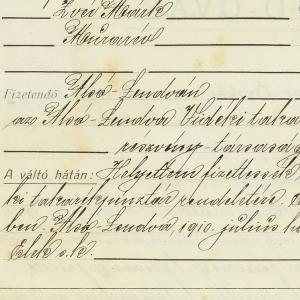 Zvei Mark
Murany
Fizetendő Alsó-Lendván
az Alsó-Lendva Vidéki taka
részvény-társasá
A váltó hátán: Helyettem fizettessék
ki takarékpénztár rendeletére.
ben. Alsó-Lendva, 1910. július
Elek s.k.